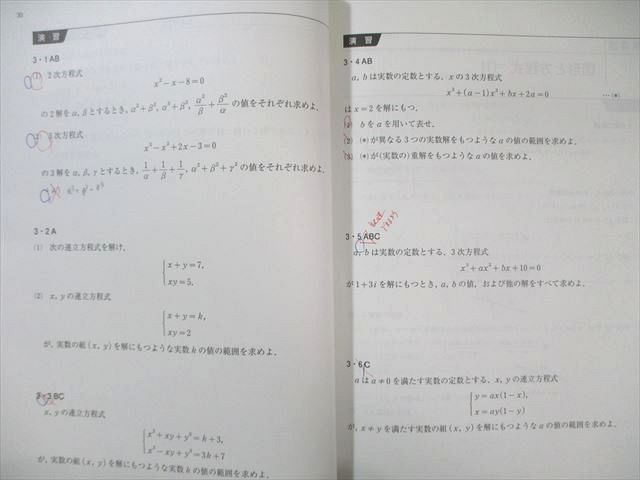 30
演習
3・1AB
(1) 2次方程式
x²−x−8=0
の2解をα, βとするとき, α²+β², α³+β³, β²/α+α²/β の値をそれぞれ求めよ.
(2) 3次方程式
x³−x²+2x−3=0
の3解をα, β, γとするとき, 1/α+1/β+1/γ, α²+β²+γ² の値をそれぞれ求めよ.
3・2A
(1) 次の連立方程式を解け.
{x+y=7,
xy=5.
(2) x, yの連立方程式
{x+y=k,
xy=2
が, 実数の組(x, y)を解にもつような実数kの値の範囲を求めよ.
3・3BC
x, yの連立方程式
{x²+xy+y²=k+3,
x²−xy+y²=3k+7
が, 実数の組(x, y)を解にもつような実数kの値の範囲を求めよ.
演習
3・4AB
a, bは実数の定数とする. xの3次方程式
x³+(a−1)x²+bx+2a=0 …(*)
はx=2を解にもつ.
(1) bをaを用いて表せ.
(2) (*)が異なる3つの実数解をもつようなaの値の範囲を求めよ.
(3) (*)が(実数の)重解をもつようなaの値を求めよ.
3・5ABC
a, bは実数の定数とする. 3次方程式
x³+ax²+bx+10=0
が1+3iを解にもつとき, a, bの値, および他の解をすべて求めよ.
3・6C
aはa≠0を満たす実数の定数とする. x, yの連立方程式
{y=ax(1−x),
x=ay(1−y)
が, x≠yを満たす実数の組(x, y)を解にもつようなaの値の範囲を求めよ.